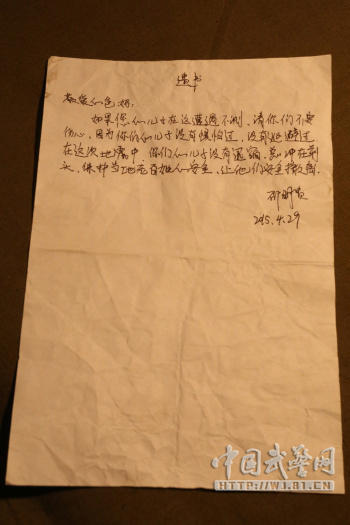 遗书
敬爱的爸妈:
如果您们儿子在这遭遇不测,请你们不要
伤心,因为你们的儿子没有惧怕过,没有逃避过
在这次地震中,你们的儿子没有退缩,总冲在前
头,保护当地老百姓的安全,让他们安全撤离。
邵明贵
2015.4.29
中国武警网
HTTP://WJ.81.CN